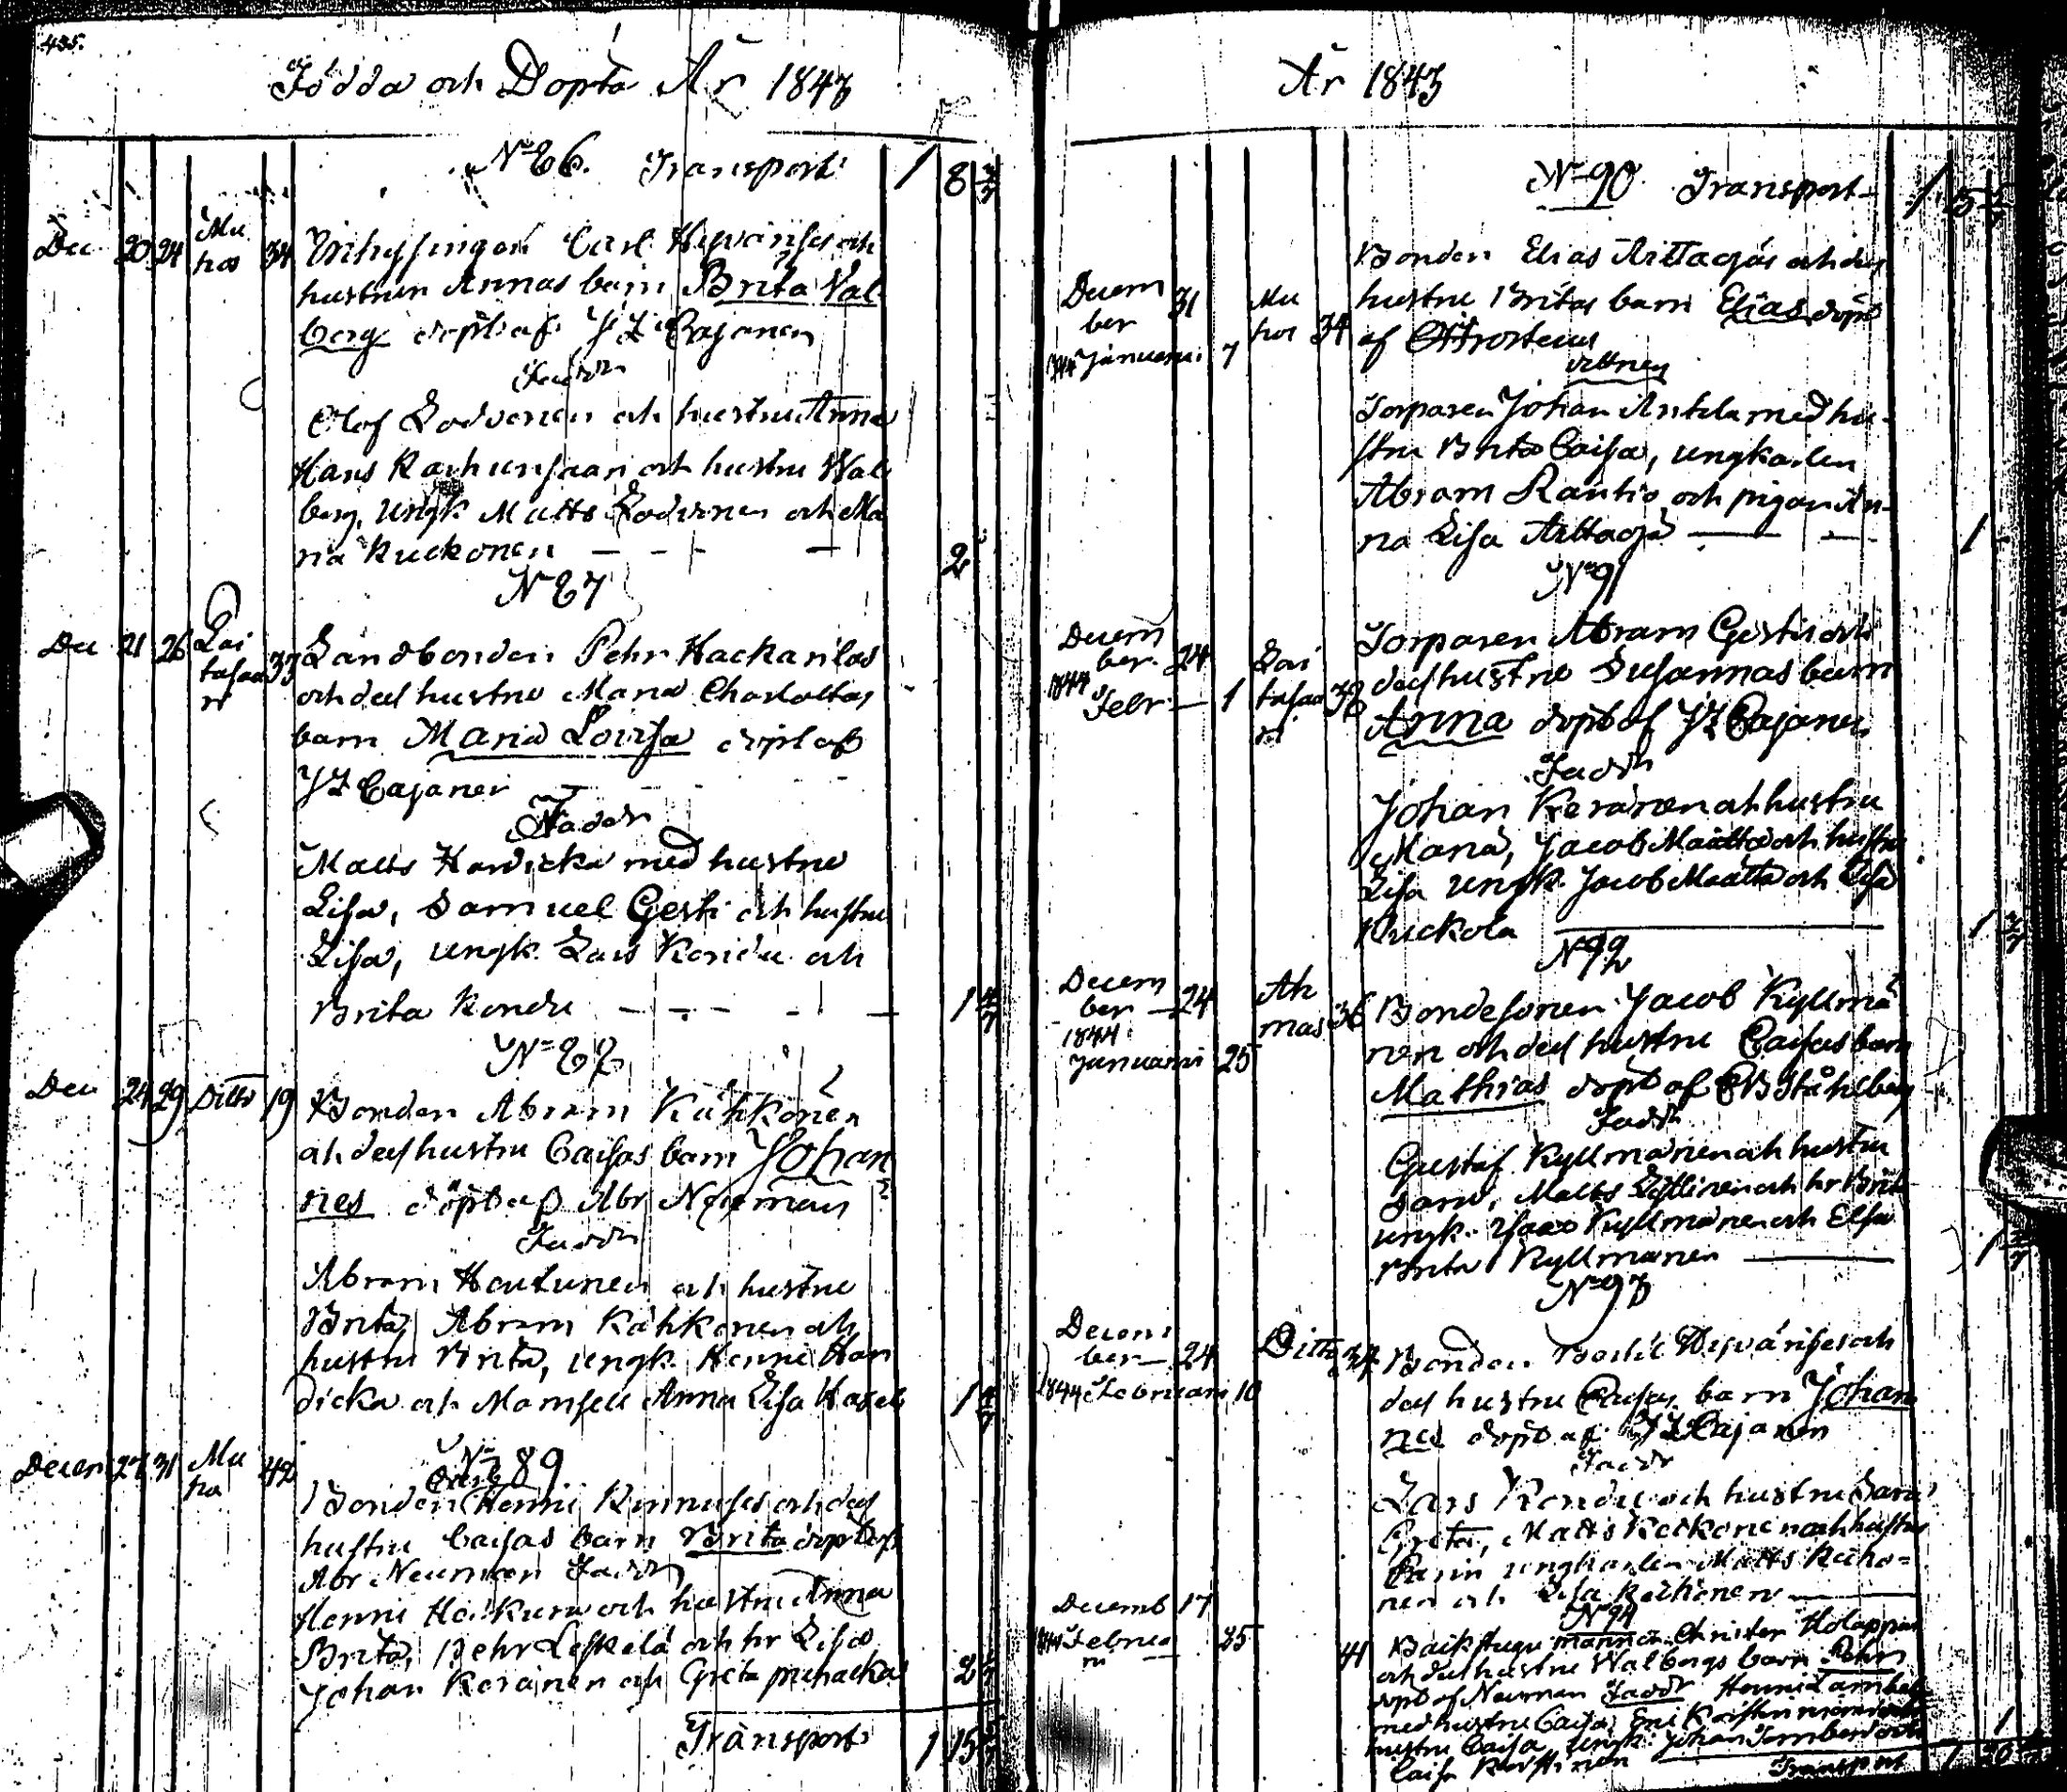 435.
Födda och Döpta År 1843
No 86. Transport 1 8
Dec 20 24 Mu
hos 34 Carl Hyvärises och
hustrun Annas barn Brita Val
borg döpt af J F Cajanen
Faddr
Olof Lodvenen och hustru Anna
Hans Karhunsaari och hustru Wal
borg, Ungk Matts Lodvenen och Ma
ria Kuckonen — — — — 2
No 87
Dec 21 26 Säi
täsaa
ri 33 Landbonden Pehr Hackarilas
och des hustru Maria Charlottas
barn Maria Lovisa döpt af
J F Cajanen
Faddr
Matts Handicka med hustru
Lisa, Samuel Gesti och hustru
Lisa, ungk. Lars Kondu och
Brita Kondu — — — — 1
No 88
Dec 24 29 Ditto 19 Bonden Abram Kähkönen
och des hustru Caisas barn Johan
nes döpt af Abr Neuman
Faddr
Abram Houtunen och hustru
Brita, Abram Kähkönen och
hustru Brita, ungk. Henric Han
dicka och Mamsell Anna Lisa Hagel 1
No 89
Decem 27 31 Mu
ho 42 Bonden Henric Kinnuses och des
hustru Caisas barn Brita döpt af
Abr Neuman Faddr
Henric Heikura och hustru Anna
Brita, Pehr Leskelä och hr Lisa
Johan Keränen och Greta 2
Transport 1 15
År 1843
No 90. Transport 1 5
Bonden Elias Aittagås och des
Decem
ber 31 Mu
hos 34 hustru Britas barn Elias döpt
1844 Januari 7 af
vittnen
Torparen Johan Antila med hu-
stru Brita Caisa, ungkarlen
Abram Rautio och pigan An-
na Lisa Aittagå — — 1
No 91
Decem
ber 24
1844
Febr — 1 Säi
täsaa
ri 38 Torparen Abram Gestis och
des hustru Susannas barn
Anna döpt af J F Cajanen
Faddr
Johan Keränen och hustru
Maria, Jacob Määttä och hustru
Lisa ungk. Jacob Määttä och Lisa
Kuckola — 1
No 92
Decem
ber — 24
1844
Januarii 25 Ah
mas 36 Bondesonen Jacob Kyllmä
nen och des hustru Caisas barn
Mathias döpt af E B Ståhlberg
Faddr
Gustaf Kyllmänen och hustru
Sara, Matts och hr Brita
ungk. Isaac Kyllmänen och Elsa
Brita Kyllmänen — 1
No 93
Decem
ber — 24
1844 Februarii 10 Ditto 34 Bonden Hyvärises och
des hustru Caisas barn Johan
nes döpt af J F Cajanen
Faddr
Lars Kondu och hustru Sara
Greta, Matts Keckonen och hustru
Carin ungkarlen Matts Kecko-
nen och Lisa Keckonen —
No 94
Decemb 17
1844 Februa
rii — 25 41 Backstugu mannen Christer Holappas
och des hustru Walborgs barn Pehr
döpt af Neuman Faddr Henric
med hustru Caisa,
hustru Caisa, Ungk. Johan och 1
Caisa
Transport 1